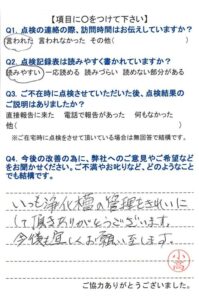 【項目に○をつけて下さい】
Q1. 点検の連絡の際、訪問時間はお伝えしていますか?
言われた 言われなかった その他( )
Q2. 点検記録表は読みやすく書かれていますか?
読みやすい 一応読める 読みづらい 読めない部分がある
Q3. ご不在時に点検させていただいた後、点検結果の
ご説明はありましたか?
直接報告に来た 電話で報告があった 何もなかった
他( )
※ご在宅時に点検をさせて頂いている場合は無回答で結構です。
Q4. 今後の改善の為に、弊社へのご意見やご希望など
をお聞かせください。ご不満やお叱りなど、どのようなこと
でも結構です。
いつも浄化槽の管理をきれいに
して頂きありがとうございます。
今後も宜しくお願い致します。
小高
ご協力ありがとうございました。